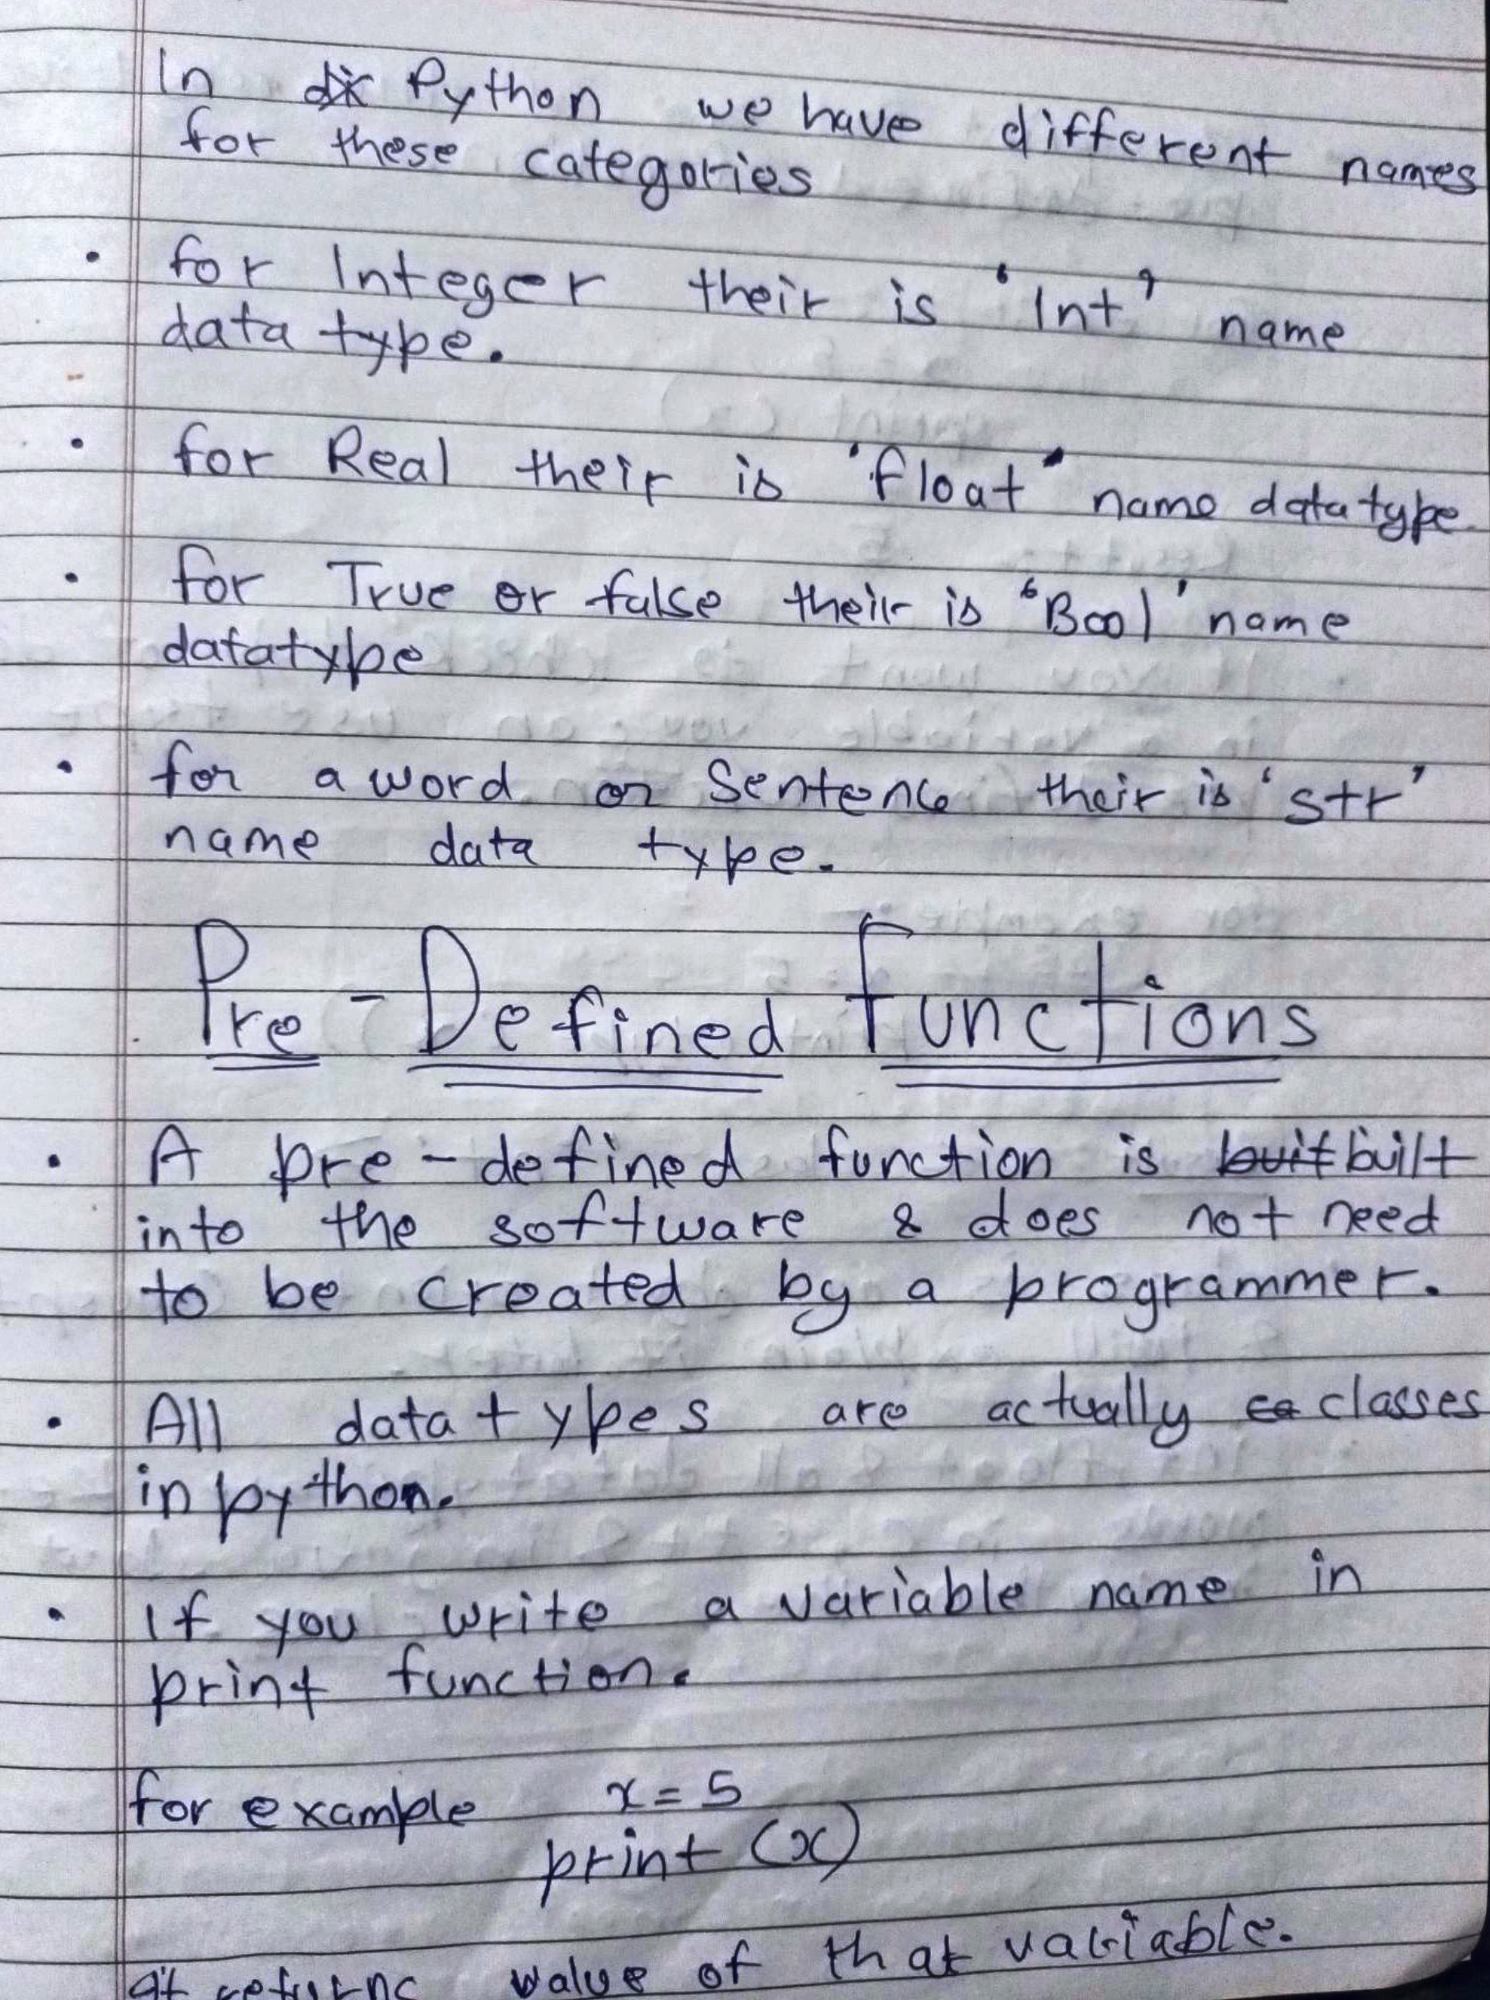 In Python we have different names
for these categories
• for Integer their is 'Int' name
data type.
• for Real their is 'float' name datatype.
• for True or false their is 'Bool' name
datatype
• for a word or Sentence their is 'str'
name data type.
Pre-Defined Functions
• A pre-defined function is buit built
into the software & does not need
to be created by a programmer.
• All datatypes are actually classes
in python.
• If you write a variable name in
print function.
for example x = 5
print (x)
It returns value of that variable.